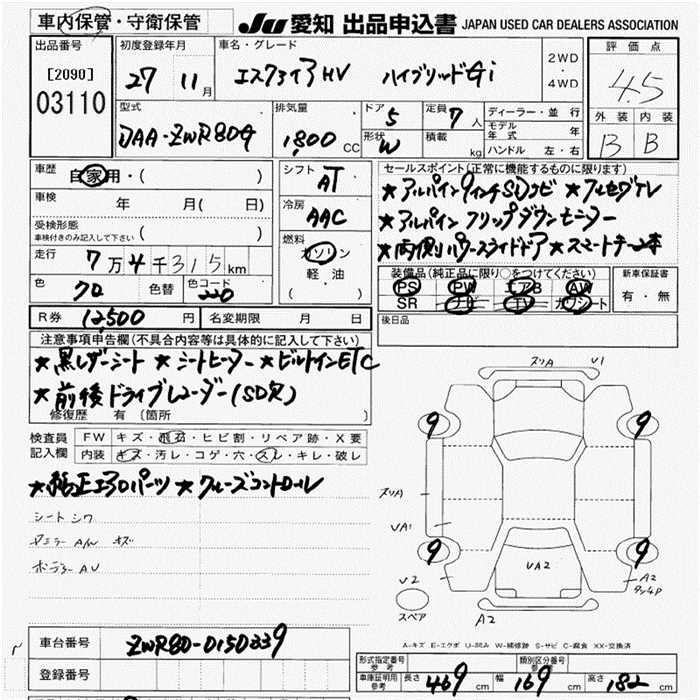 車内保管・守衛保管 Ju 愛知 出品申込書 JAPAN USED CAR DEALERS ASSOCIATION
出品番号 初度登録年月 車名・グレード 2WD・4WD 評価点
[2090] 27 11月 エスクァイア HV ハイブリッド Gi 4.5
03110
型式 排気量 ドア 5 定員 7人 ディーラー・並行 外装 内装
DAA-ZWR80G 1,800 CC 形状 W 積載 kg モデル年式 年 B B
ハンドル 左・右
車歴 自家用・( ) シフト AT セールスポイント(正常に機能するものに限ります)
車検 年 月( 日) 冷房 AAC ★アルパイン9インチSDナビ ★フルセグTV
受検形態 車検付きのみ記入して下さい ( ) ★アルパイン フリップダウンモニター
走行 7万4千315km 燃料 ガソリン・軽油 ( ) ★両側パワースライドドア ★スマートキー2本
色 クロ 色替 色コード 220 装備品(純正品に限り○をつけてください) 新車保証書
PS PW エアB AW 有・無
SR ナビ TV カワシート
R券 12,500円 名変期限 月 日 後日品
注意事項申告欄(不具合内容等は具体的に記入して下さい)
★黒レザーシート ★シートヒーター ★ビルトインETC
★前後ドライブレコーダー(SD欠)
修復歴 有 〔箇所 〕
検査員記入欄 FW キズ・飛石・ヒビ割・リペア跡・X要
内装 キズ・汚レ・コゲ・穴・スレ・キレ・破レ
★純正エアロパーツ ★クルーズコントロール
シート シワ
AW キズ
スリA V1
9 9
スリA
VA1
9 9
VA2
V2 A2
スペア A2
A-キズ E-エクボ U-凹み W-補修跡 S-サビ C-腐食 XX-交換済
車台番号 ZWR80-0150339
登録番号
形式指定番号 参考 類別区分番号 参考
車庫証明用 参考 長さ 469cm 幅 169cm 高さ 182cm